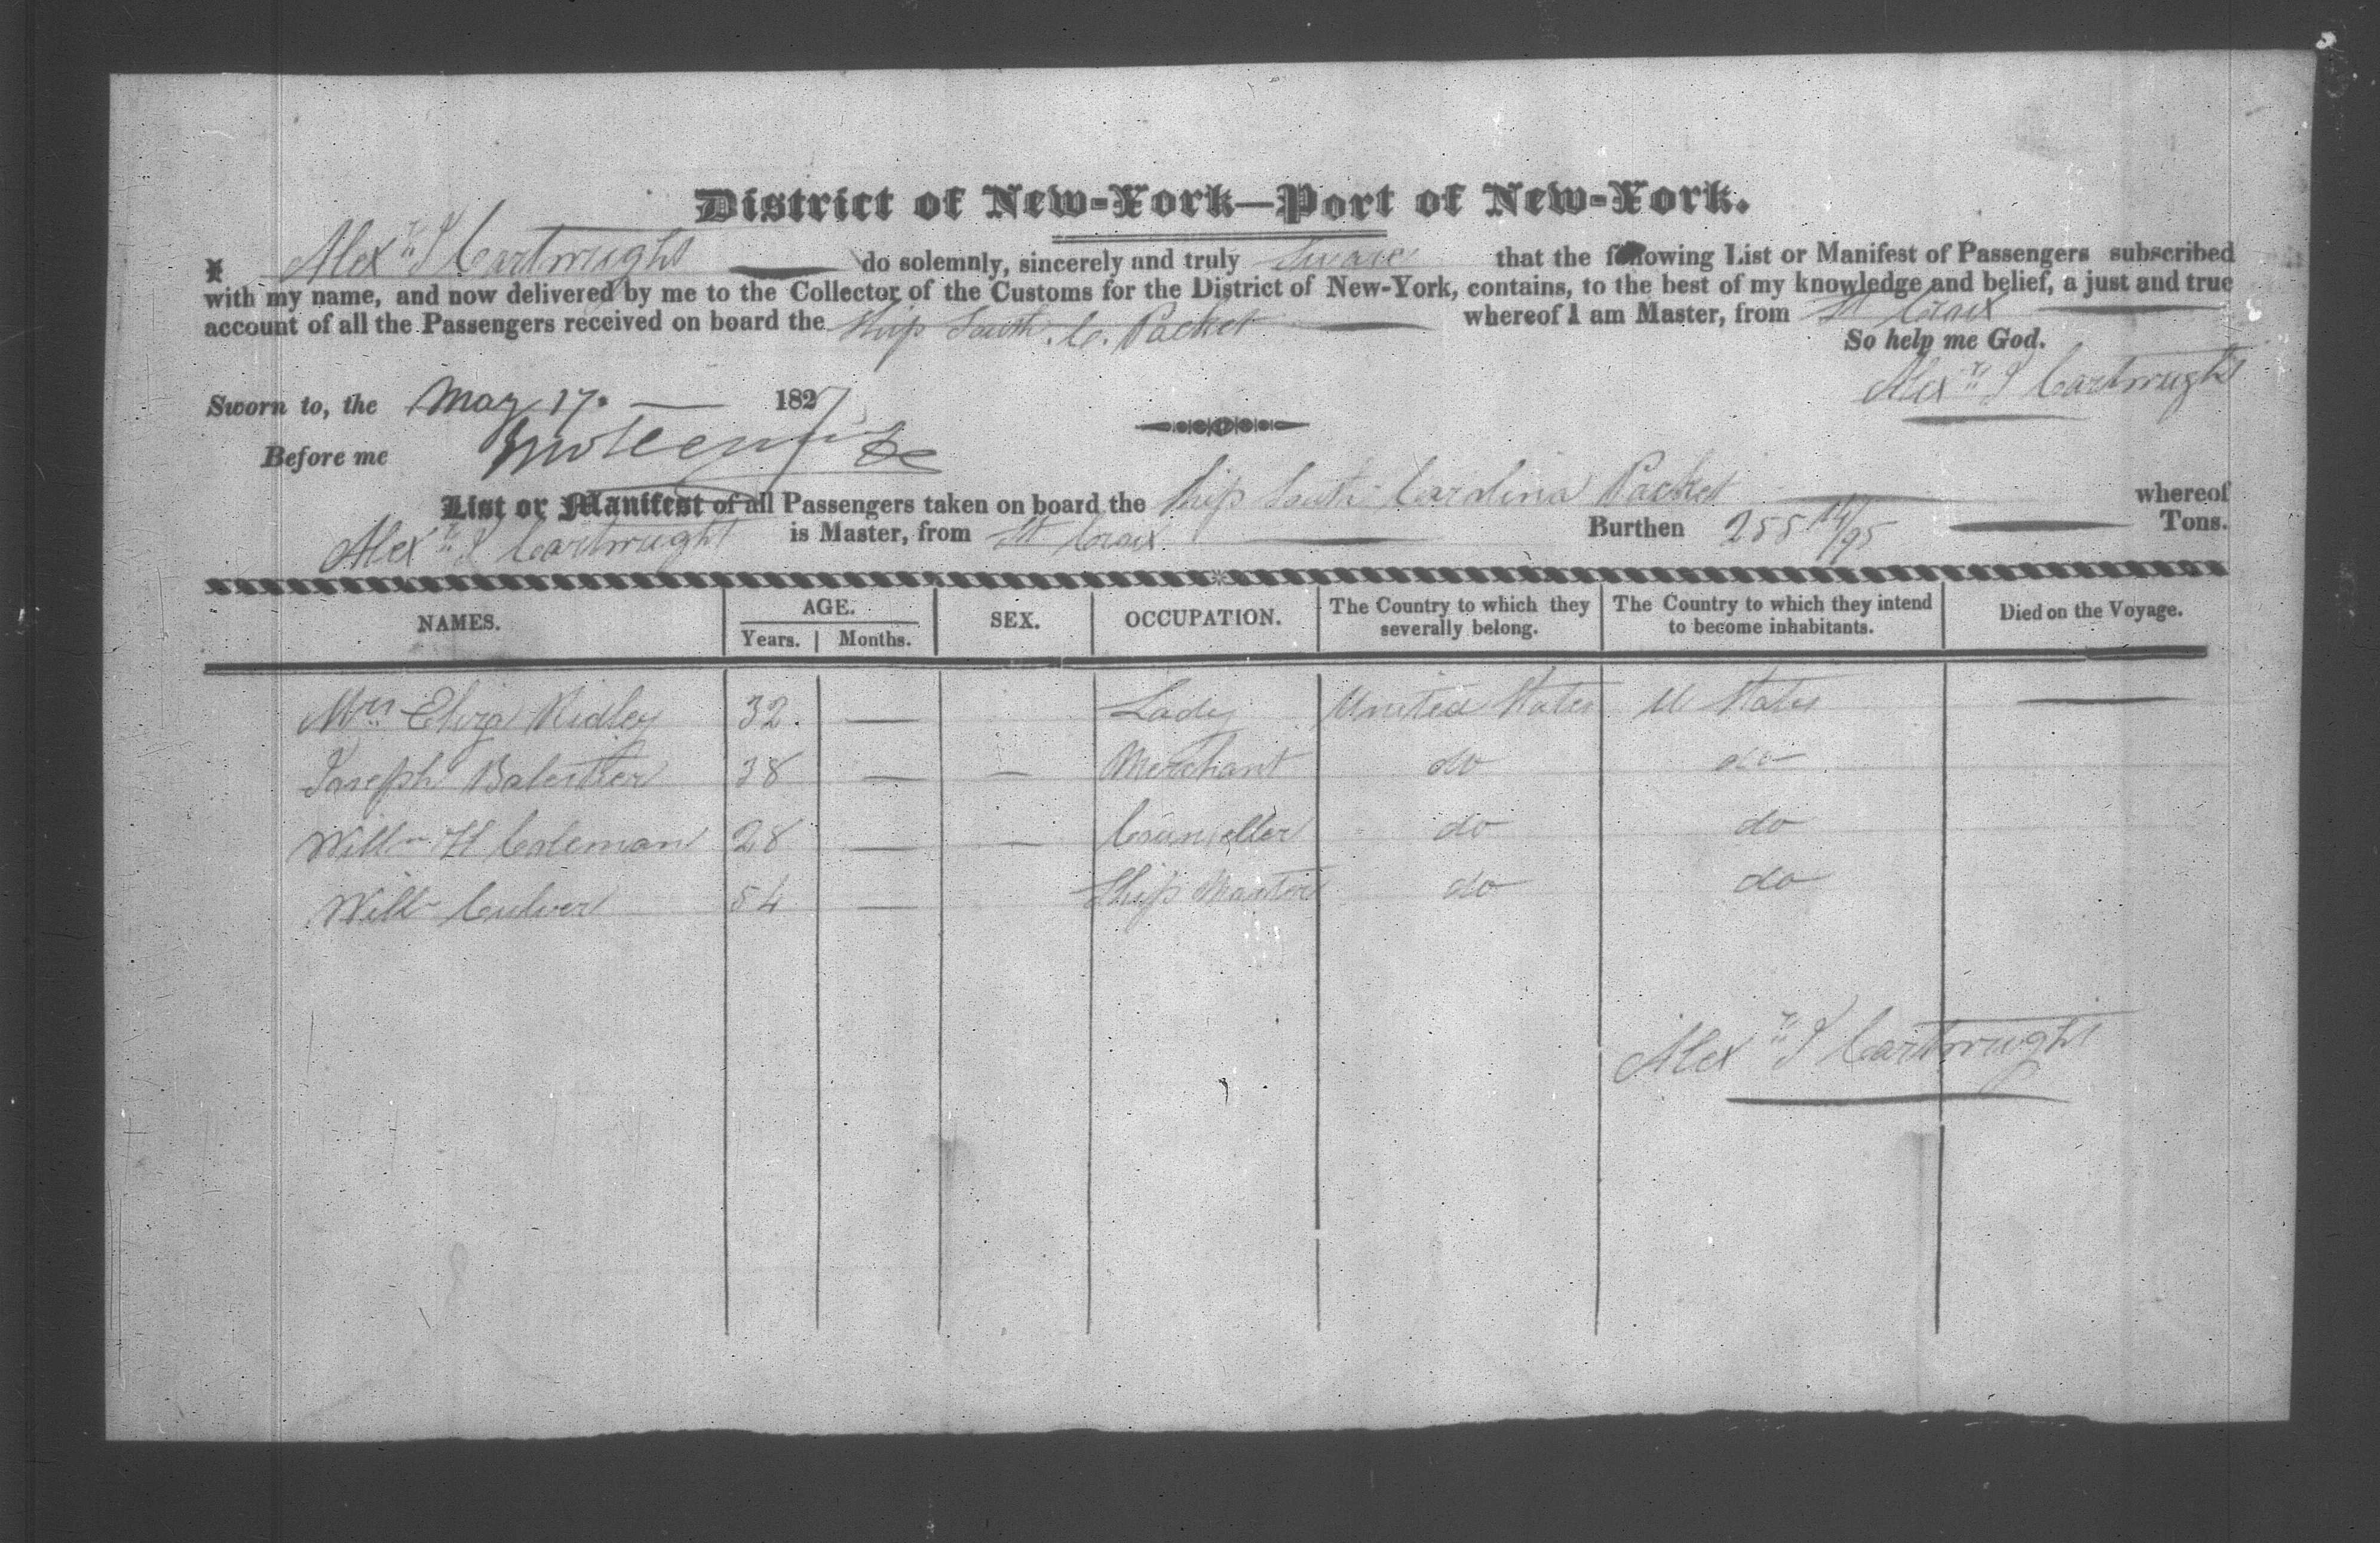 District of New-York—Port of New-York.
I Alexr I Cartwright do solemnly, sincerely and truly Sware that the following List or Manifest of Passengers subscribed
with my name, and now delivered by me to the Collector of the Customs for the District of New-York, contains, to the best of my knowledge and belief, a just and true
account of all the Passengers received on board the Ship South. C. Packet whereof I am Master, from St Croix
So help me God.
Sworn to, the May 17. 1827 Alexr I Cartwright
Before me
List or Manifest of all Passengers taken on board the Ship South Carolina Packet whereof
Alexr I Cartwright is Master, from St Croix Burthen 255 14/95 Tons.
NAMES. AGE. Years. Months. SEX. OCCUPATION. The Country to which they severally belong. The Country to which they intend to become inhabitants. Died on the Voyage.
Mrs Eliza Ridley 32. — Lady United States U States —
Joseph Balestier 38 — — Merchant do do
Willm H Coleman 28 — — Counseller do do
Willm Culver 54 — Ship Master do do
Alexr I Cartwright